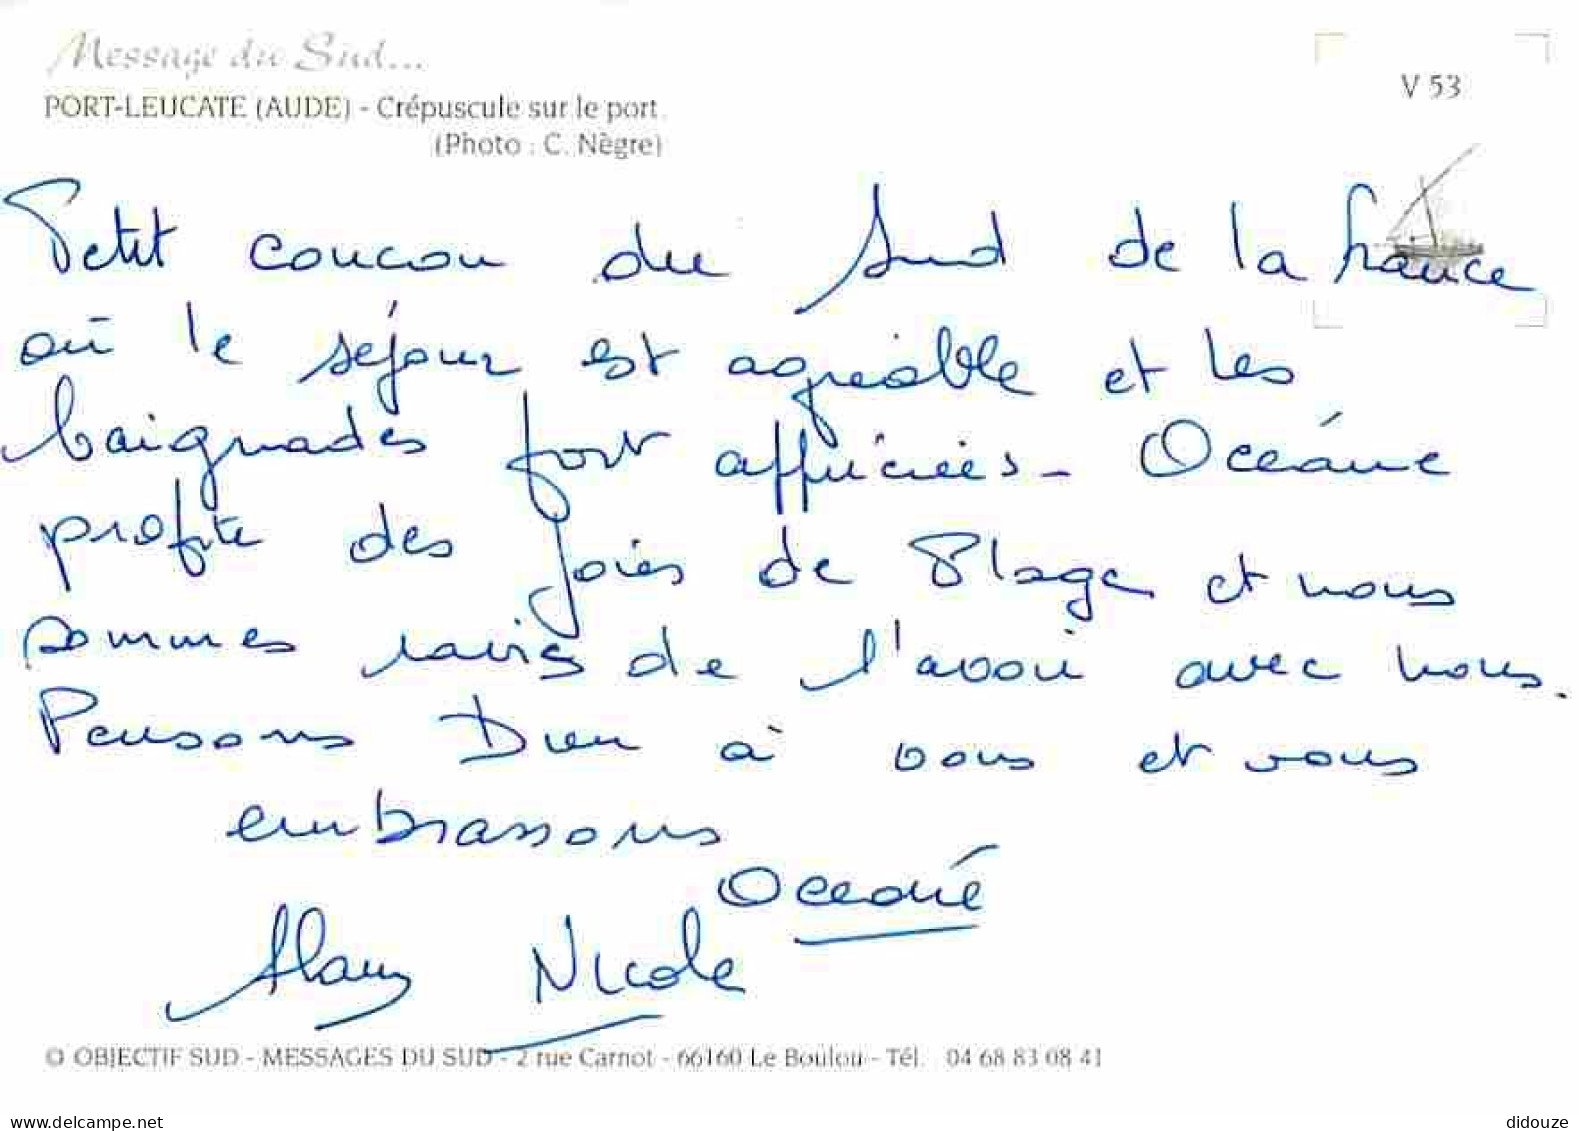 Message du Sud...
PORT-LEUCATE (AUDE) - Crépuscule sur le port.
(Photo : C. Nègre)
V 53
Petit coucou du Sud de la france
où le séjour est agréable et les
baignades fort appréciées - Océane
profite des joies de Plage et nous
sommes ravis de l'avoir avec nous.
Pensons Bien à vous et vous
embrassons
Océane
Alain Nicole
© OBJECTIF SUD - MESSAGES DU SUD - 2 rue Carnot - 66160 Le Boulou - Tél. 04 68 83 08 41
www.delcampe.net
didouze